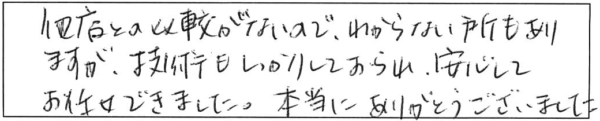 他店との比較がないので、わからない所もあり
ますが、技術もしっかりしておられ、安心して
お任せできました。本当にありがとうございました